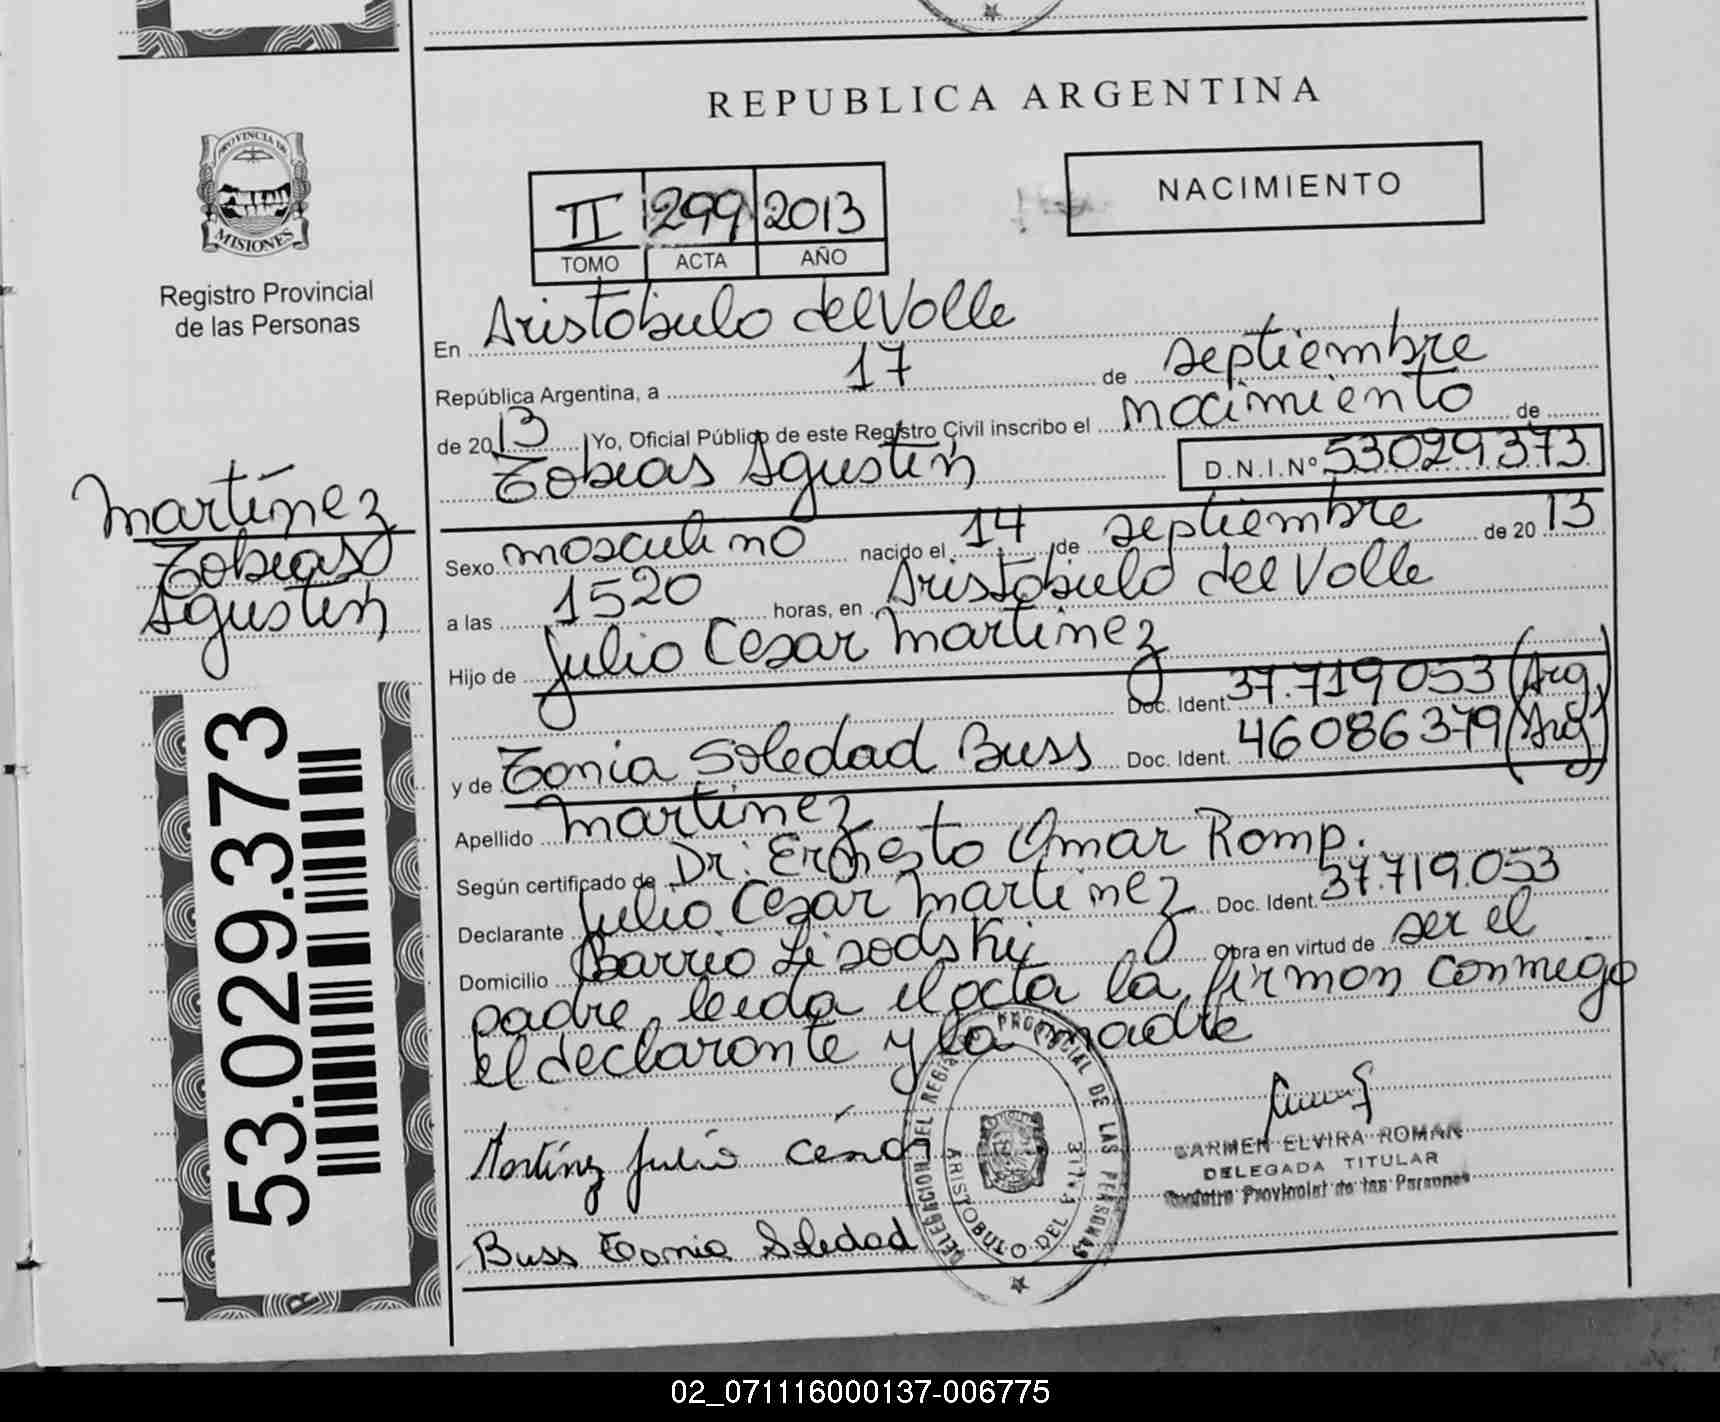 REPUBLICA ARGENTINA
PROVINCIA DE
MISIONES
Registro Provincial
de las Personas
NACIMIENTO
II 299 2013
TOMO ACTA AÑO
En Aristobulo del Valle
República Argentina, a 17 de septiembre
de 2013 Yo, Oficial Público de este Registro Civil inscribo el nacimiento de
Tobias Agustín D.N.I.Nº 53029373
Martínez
Tobias
Agustín
Sexo masculino nacido el 14 de septiembre de 2013
a las 1520 horas, en Aristobulo del Valle
Hijo de Julio Cesar Martinez
Doc. Ident. 37.719053 (Arg)
y de Tonia Soledad Buss Doc. Ident. 46086379 (Arg)
Apellido Martinez
Según certificado de Dr: Ernesto Omar Romp.
Declarante Julio Cesar Martinez Doc. Ident. 37.719.053
Domicilio Barrio Lisodski Obra en virtud de ser el
padre, leida el acta la firman conmigo
el declarante y la madre
53.029.373
Martínz Julio César
Buss Tonia Soledad
DELEGACION DEL REGISTRO PROVINCIAL DE LAS PERSONAS
ARISTOBULO DEL VALLE
CARMEN ELVIRA ROMAN
DELEGADA TITULAR
Registro Provincial de las Personas
02_071116000137-006775